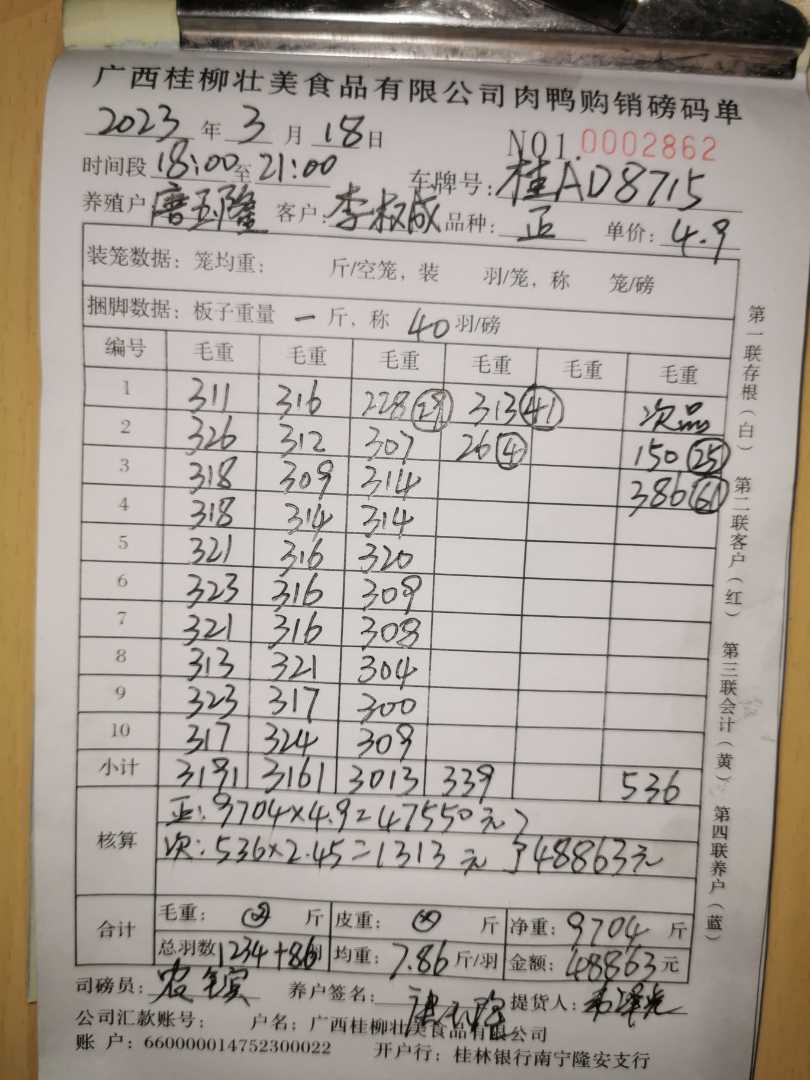 广西桂柳壮美食品有限公司肉鸭购销磅码单
2023 年 3 月 18 日 NO1.0002862
时间段 18:00 至 21:00 车牌号: 桂AD8715
养殖户 唐玉隆 客户: 李权成 品种: 正 单价: 4.9
装笼数据: 笼均重: 斤/空笼, 装 羽/笼, 称 笼/磅
捆脚数据: 板子重量 一 斤, 称 40 羽/磅
编号 毛重 毛重 毛重 毛重 毛重 毛重
1 311 316 228 313 41 次品
2 326 312 307 26 4 150 25
3 318 309 314 386 61
4 318 314 314
5 321 316 320
6 323 316 309
7 321 316 308
8 313 321 304
9 323 317 300
10 317 324 309
小计 3191 3161 3013 339 536
核算 正: 9704×4.9=47550元
次: 536×2.45=1313元 48863元
合计 毛重: 斤 皮重: 斤 净重: 9704 斤
总羽数 1234+86 均重: 7.86 斤/羽 金额: 48863 元
司磅员: 养户签名: 提货人:
公司汇款账号: 户名: 广西桂柳壮美食品有限公司
账 户: 660000014752300022 开户行: 桂林银行南宁隆安支行
第一联存根(白)
第二联客户(红)
第三联会计(黄)
第四联养户(蓝)